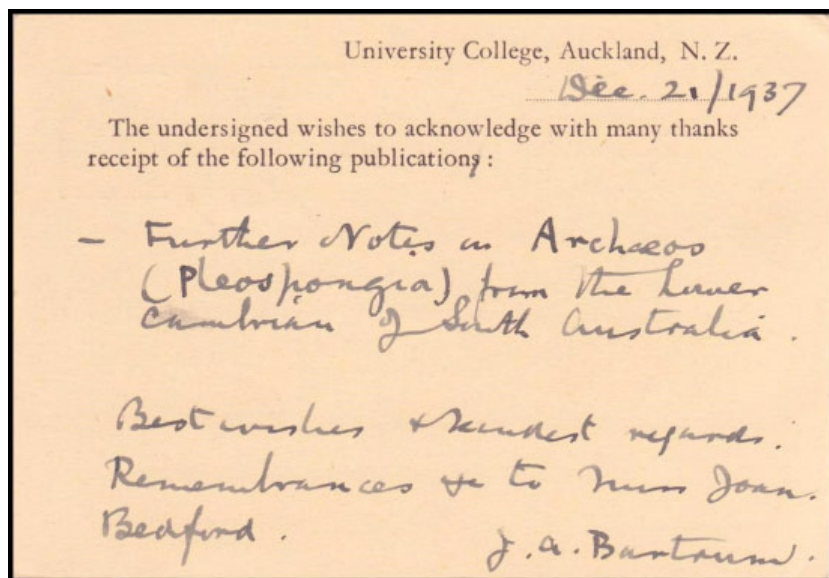 University College, Auckland, N. Z.
Dec. 21/1937
The undersigned wishes to acknowledge with many thanks
receipt of the following publication:
- Further Notes on Archæos
(Pleospongia) from the Lower
Cambrian of South Australia.
Best wishes & kindest regards.
Remembrances to Miss Joan
Bedford.
J. A. Bartrum.